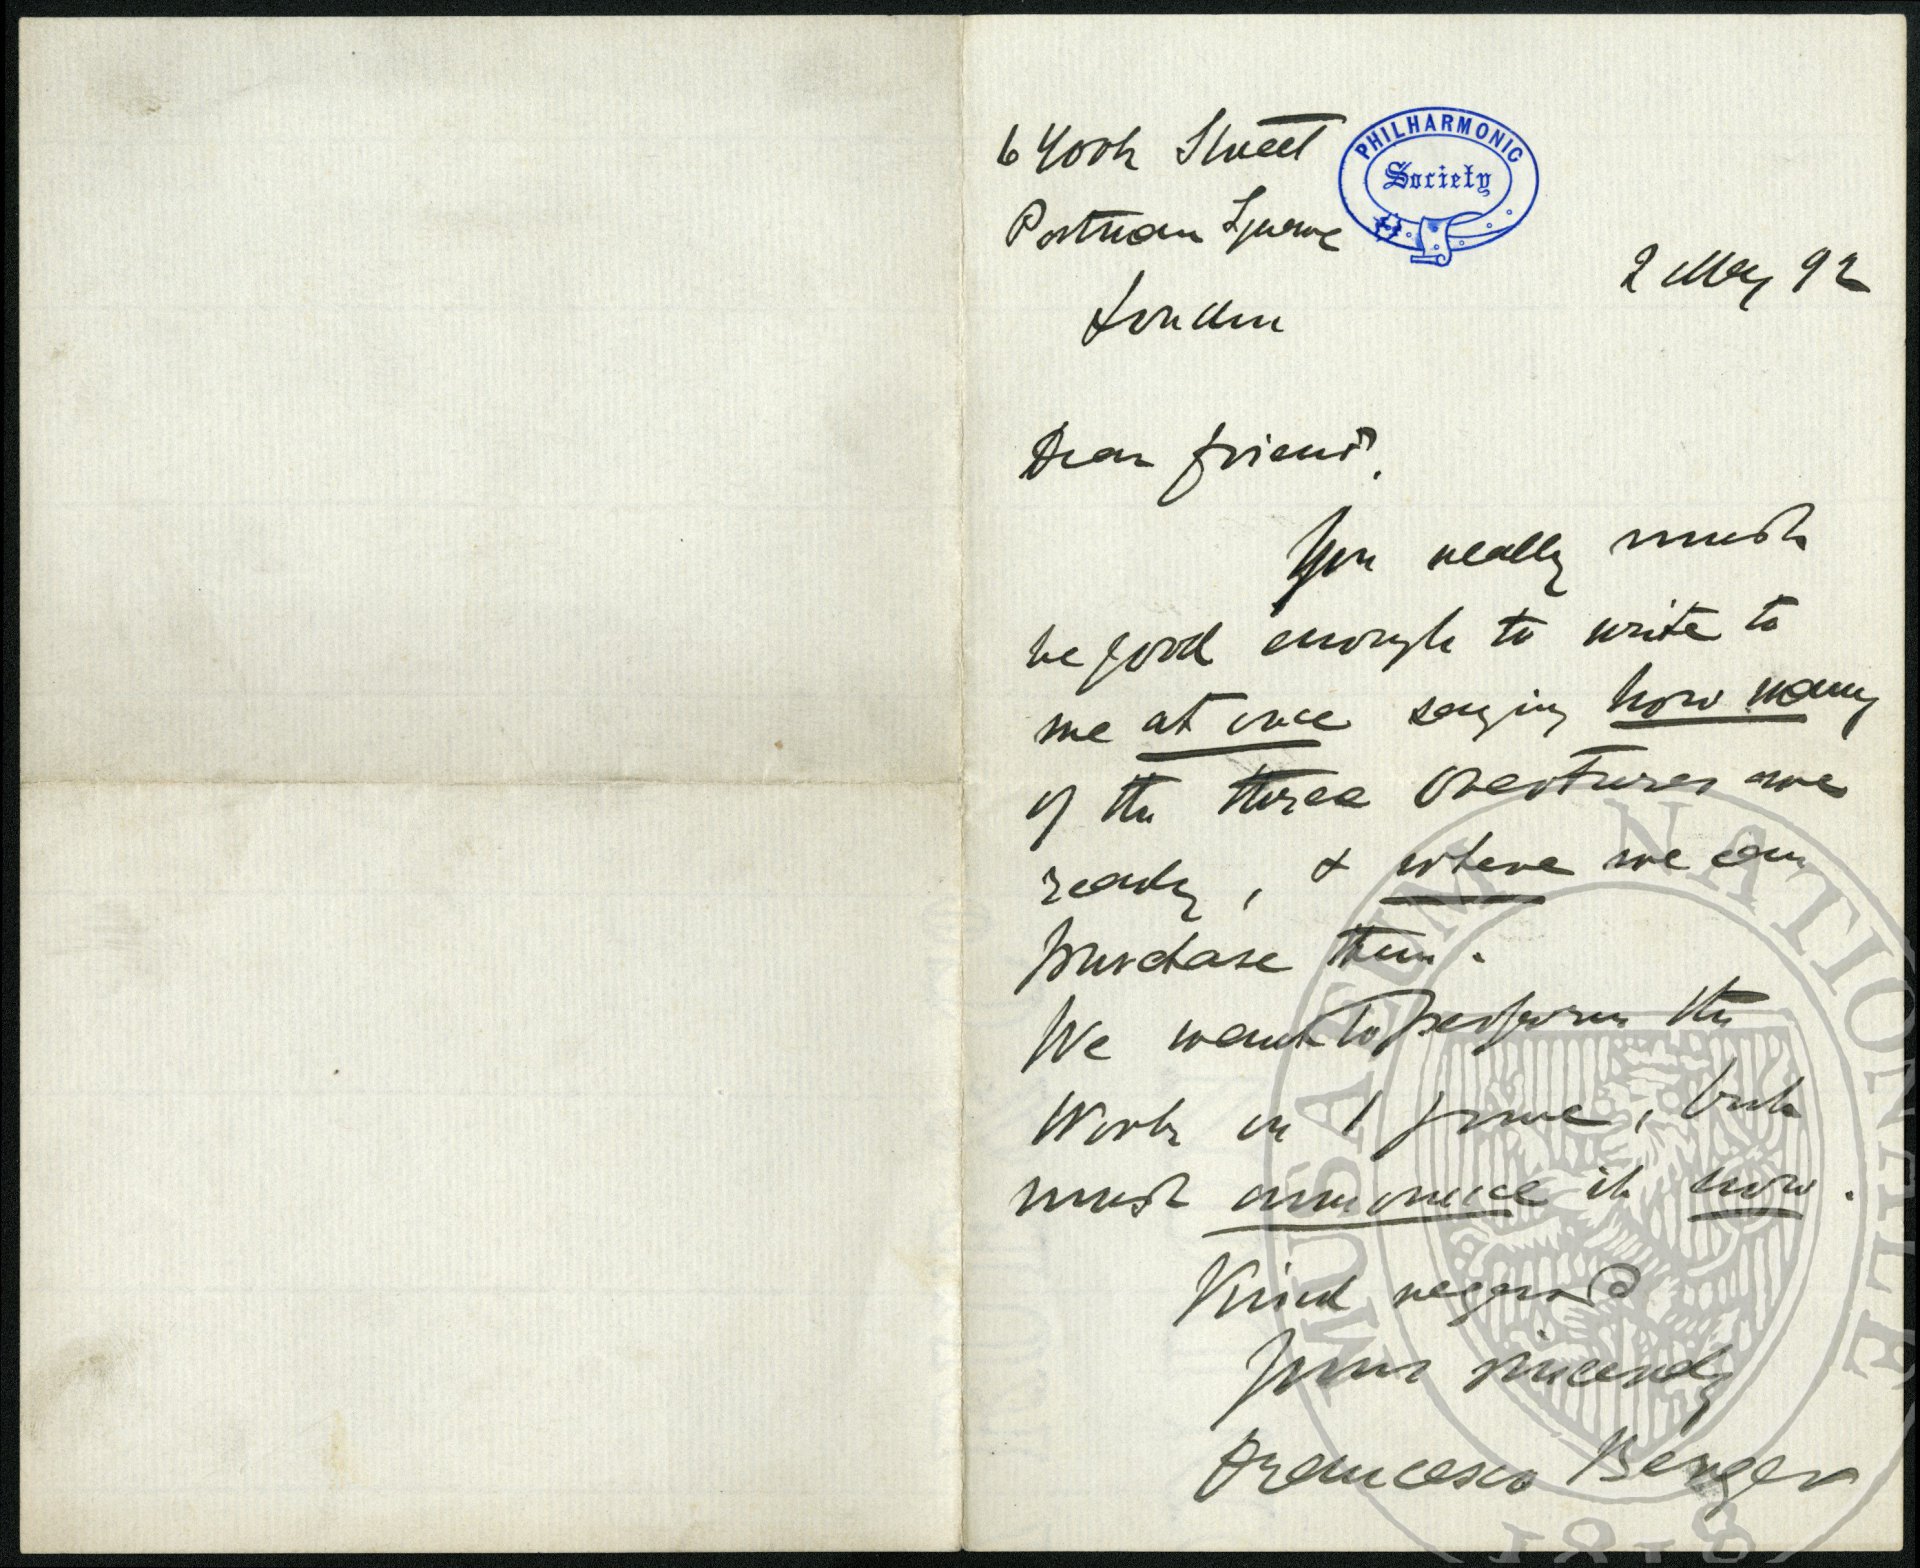 6 York Street
Portman Square
London
PHILHARMONIC
Society
2 May 92
Dear friend,
You really must
be good enough to write to
me at once saying how many
of the three Overtures are
ready, & where we can
purchase them.
We want to perform the
Work on 1 June, but
must announce it now.
Kind regard
Yours sincerely
Francesco Berger
MUSAEUM NATIONALE
1818